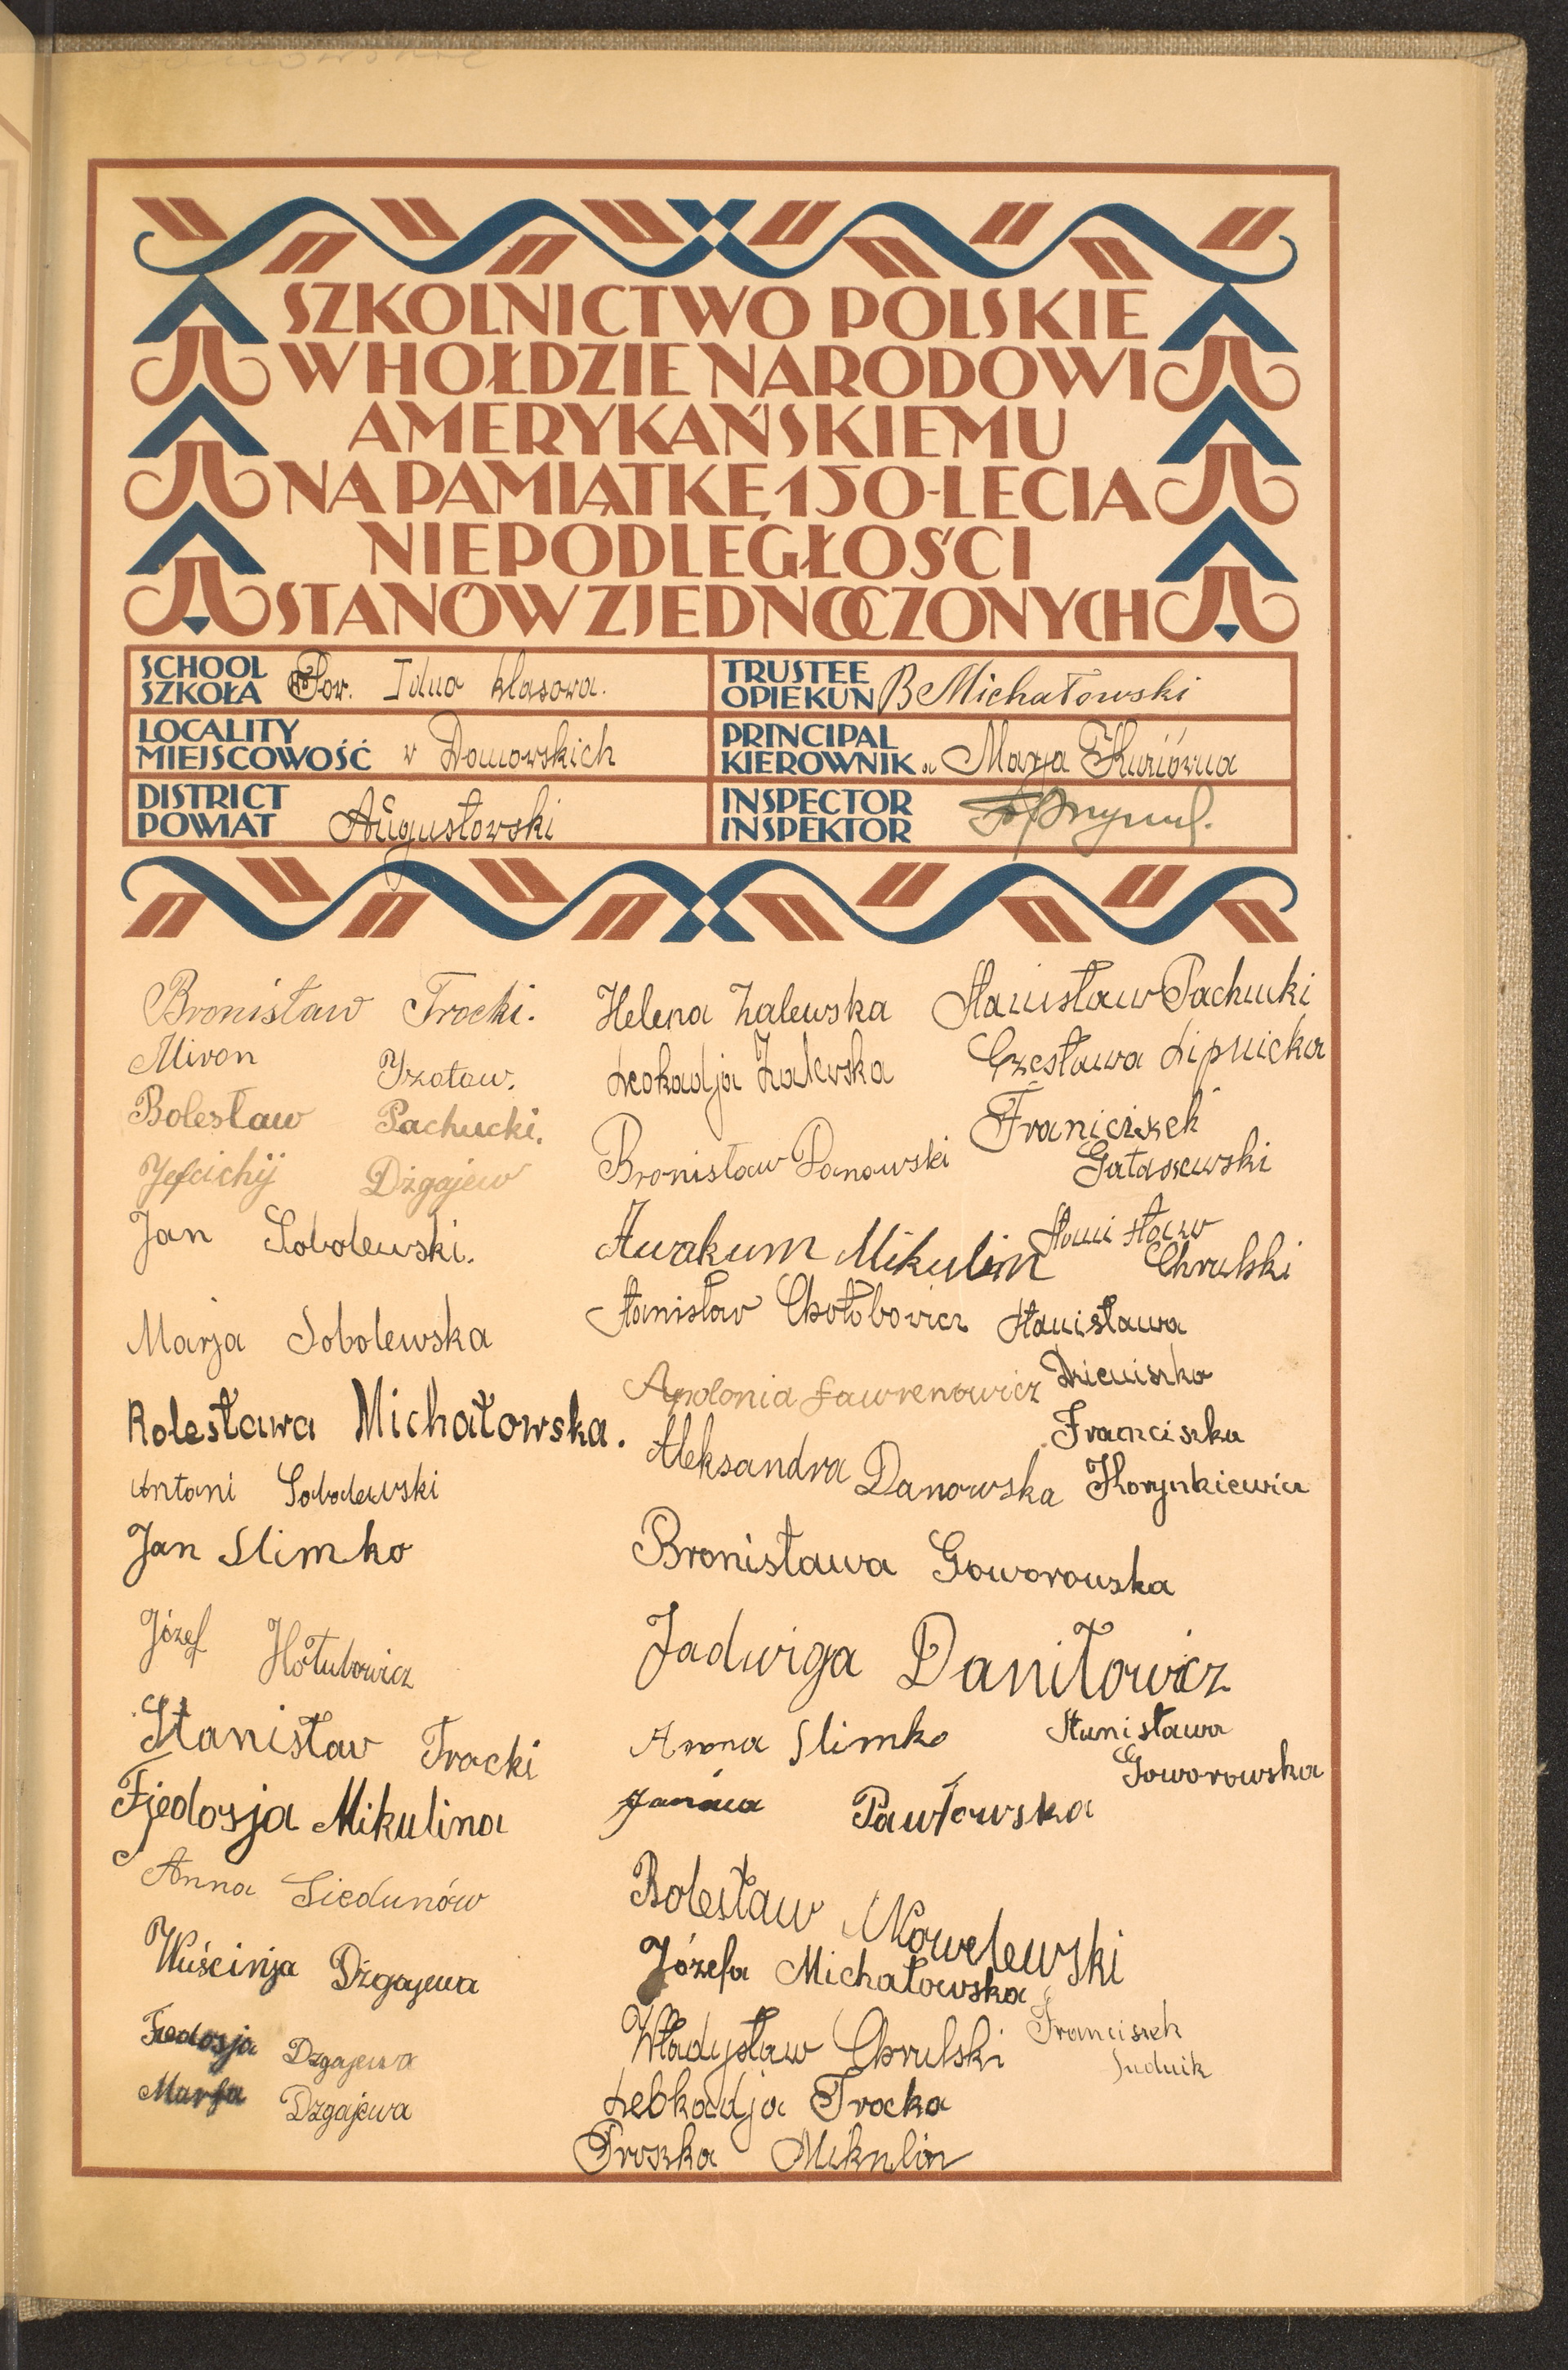 SZKOLNICTWO POLSKIE
W HOŁDZIE NARODOWI
AMERYKAŃSKIEMU
NA PAMIĄTKĘ 150-LECIA
NIEPODLEGŁOŚCI
STANÓW ZJEDNOCZONYCH
SCHOOL
SZKOŁA Pow. klasowa.
TRUSTEE
OPIEKUN B Michałowski
LOCALITY
MIEJSCOWOŚĆ w Domowskich
PRINCIPAL
KIEROWNIK Marja
DISTRICT
POWIAT Augustowski
INSPECTOR
INSPEKTOR
Bronisław Trocki.
Miron Yzotow.
Bolesław Pachucki.
Dżgajew
Jan Sobolewski.
Marja Sobolewska
Bolesława Michałowska.
Antoni Sobolewski
Jan Slimko
Józef Hołubowicz
Stanisław Trocki
Fjedosja Mikulina
Anna Siedunów
Wuścinja Dżgajewa
Fiedosja Dzgajewa
Marfa Dzgajewa
Helena Zalewska
Leokadja Zalewska
Bronisław Danowski
Awakum Mikulin
Stanisław Chołobowicz
Apolonia Ławrenowicz
Aleksandra Danowska
Bronisława Goworowska
Jadwiga Daniłowicz
Anna Slimko
Janina Pawłowska
Bolesław Nowelewski
Józefa Michałowska
Władysław Chrulski
Leokadja Trocka
Proszka Mikulin
Stanisław Pachucki
Czesława Lipnicka
Franciszek
Gałaszewski
Stanisław
Chrulski
Stanisława
Dzieniszko
Franciszka
Horynkiewicz
Stanisława
Goworowska
Franciszek
Sudnik